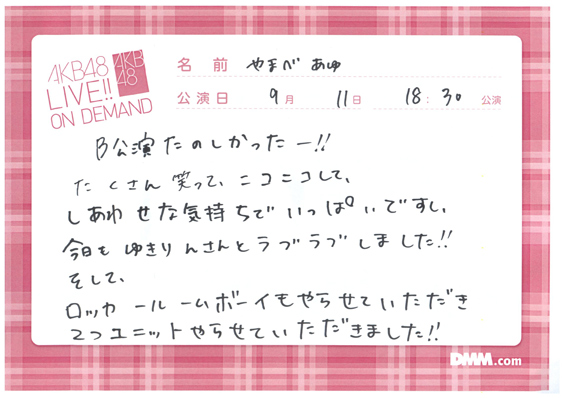 AKB48
LIVE!!
ON DEMAND
AKB
48
名前 やまべ あゆ
公演日 9月 11日 18:30 公演
B公演たのしかったー!!
たくさん笑って、ニコニコして、
しあわせな気持ちでいっぱいですし、
今日もゆきりんさんとラブラブしました!!
そして、
ロッカールームボーイもやらせていただき
2つユニットやらせていただきました!!
DMM.com